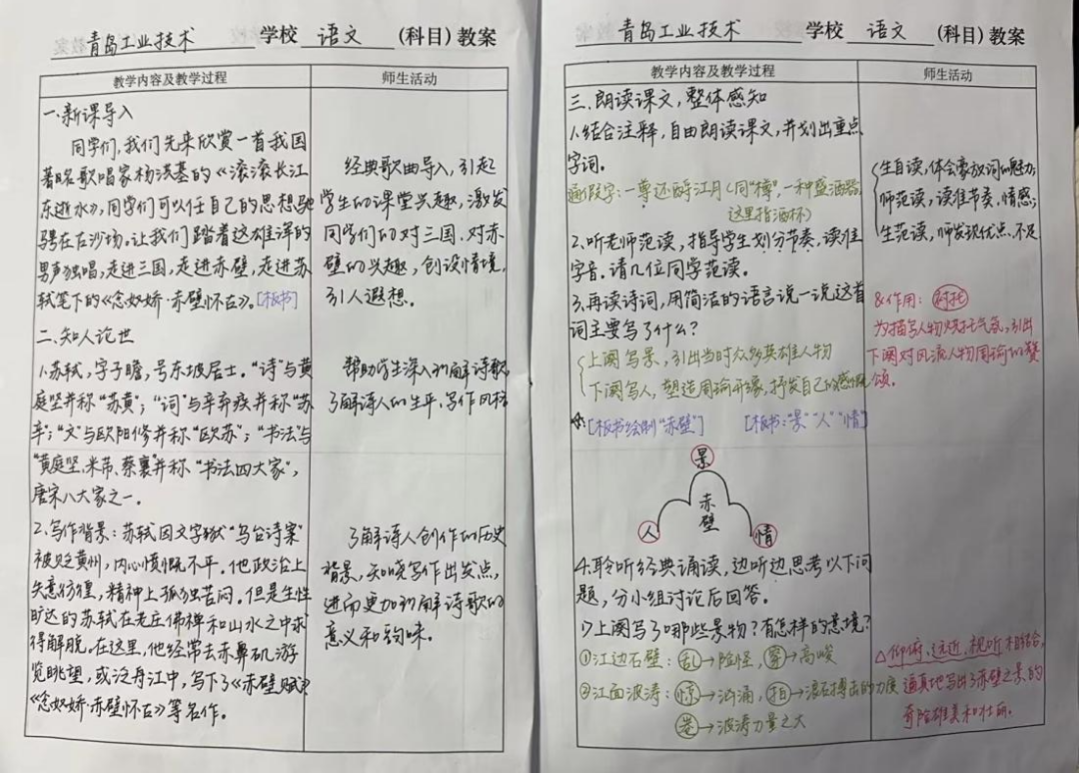 青岛工业技术 学校 语文 (科目) 教案
教学内容及教学过程
师生活动
一.新课导入
同学们,我们先来欣赏一首我国
著名歌唱家杨洪基的《滚滚长江
东逝水》,同学们可以任自己的思想驰
骋在古沙场。让我们踏着这雄浑的
男声独唱,走进三国,走进赤壁,走进苏
轼笔下的《念奴娇·赤壁怀古》。[板书]
二.知人论世
1.苏轼,字子瞻,号东坡居士。“诗”与黄
庭坚并称“苏黄”;“词”与辛弃疾并称“苏
辛”;“文”与欧阳修并称“欧苏”;“书法”与
“黄庭坚、米芾、蔡襄”并称“书法四大家”,
唐宋八大家之一。
2.写作背景:苏轼因文字狱“乌台诗案”
被贬黄州,内心愤慨不平。他政治上
失意彷徨,精神上孤独苦闷。但是生性
旷达的苏轼在老庄佛禅和山水之中求
得解脱。在这里,他经常去赤鼻矶游
览眺望,或泛舟江中,写下了《赤壁赋》
《念奴娇·赤壁怀古》等名作。
经典歌曲导入,引起
学生的课堂兴趣,激发
同学们的对三国、对赤
壁的兴趣,创设情境,
引人遐想。
帮助学生深入理解诗歌,
了解诗人的生平、写作风格
了解诗人创作的历史
背景,知晓写作出发点,
进而更加理解诗歌的
意义和韵味。
青岛工业技术 学校 语文 (科目) 教案
教学内容及教学过程
师生活动
三.朗读课文,整体感知
1.结合注释,自由朗读课文,并划出重点
字词。
通假字:一尊还酹江月(同“樽”,一种盛酒器,
这里指酒杯)
2.听老师范读,指导学生划分节奏,读准
字音。请几位同学范读。
3.再读诗词,用简洁的语言说一说这首
词主要写了什么?
上阕写景,引出当时众多英雄人物
下阕写人,塑造周瑜形象,抒发自己的感慨
[板书绘制“赤壁”] [板书:“景”“人”“情”]
景
赤
壁
人
情
4.聆听经典诵读,边听边思考以下问
题,分小组讨论后回答。
1)上阕写了哪些景物?有怎样的意境?
①江边石壁:乱→险怪,穿→高峻
②江面波涛:惊→汹涌,拍→滚石搏击的力度
卷→波涛力量之大
生自读,体会豪放词的魅力;
师范读,读准节奏、情感;
生范读,师发现优点、不足
&作用:衬托
为描写人物烘托气氛,引出
下阕对风流人物周瑜的赞
颂。
△仰俯、远近、视听相结合,
逼真地写出了赤壁之景的
奇险雄美和壮丽。